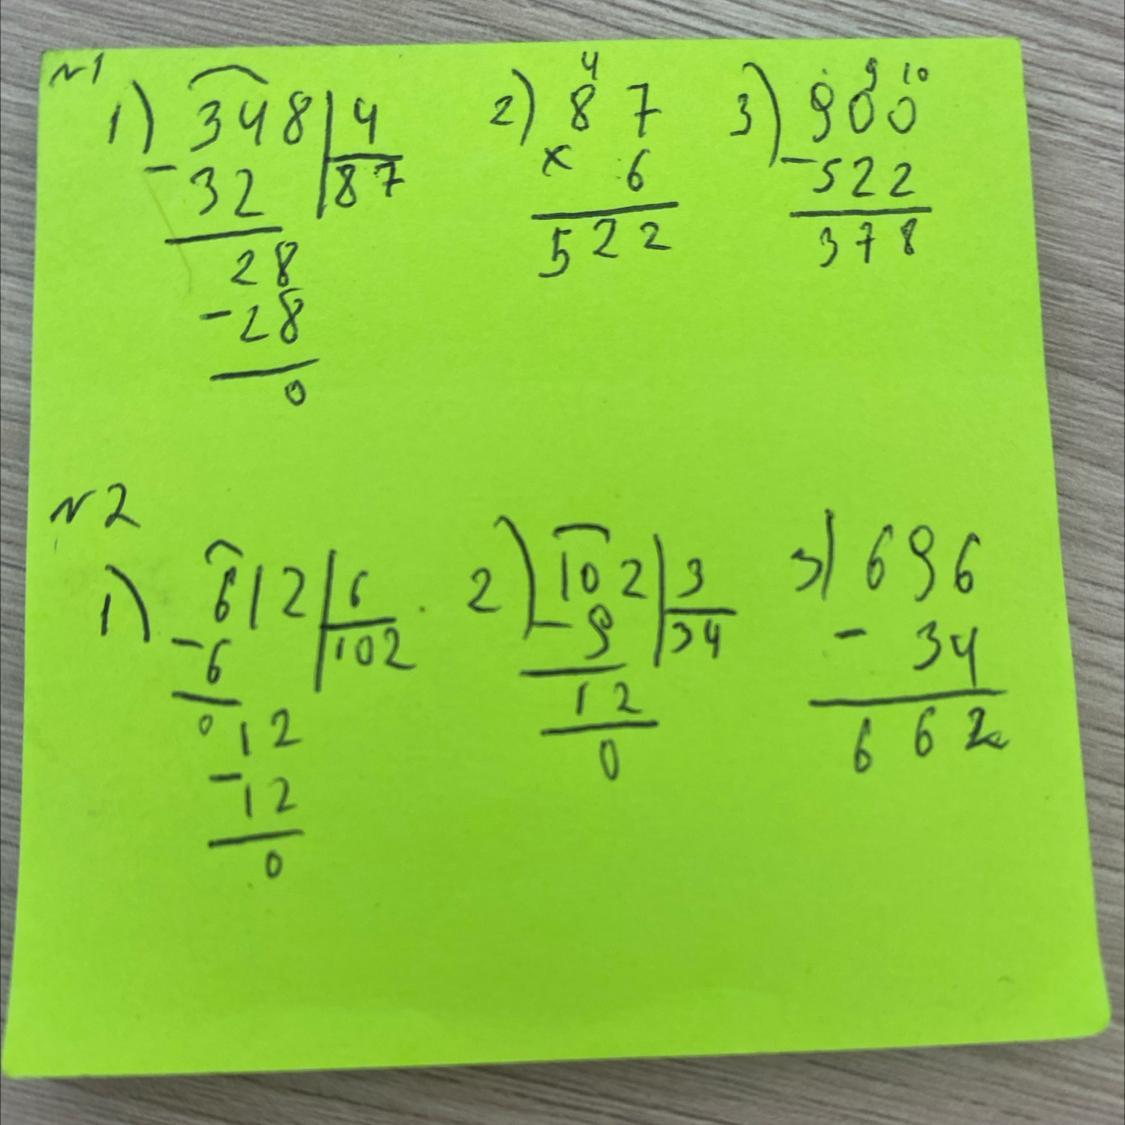 №1
1) 348 | 4
- 32 | 87
28
- 28
0
2) 4
87
× 6
522
3) 9 10
900
- 522
378
№2
1) 612 | 6
- 6 | 102
0 12
- 12
0
2) 102 | 3
- 9 | 34
12
0
3) 696
- 34
662